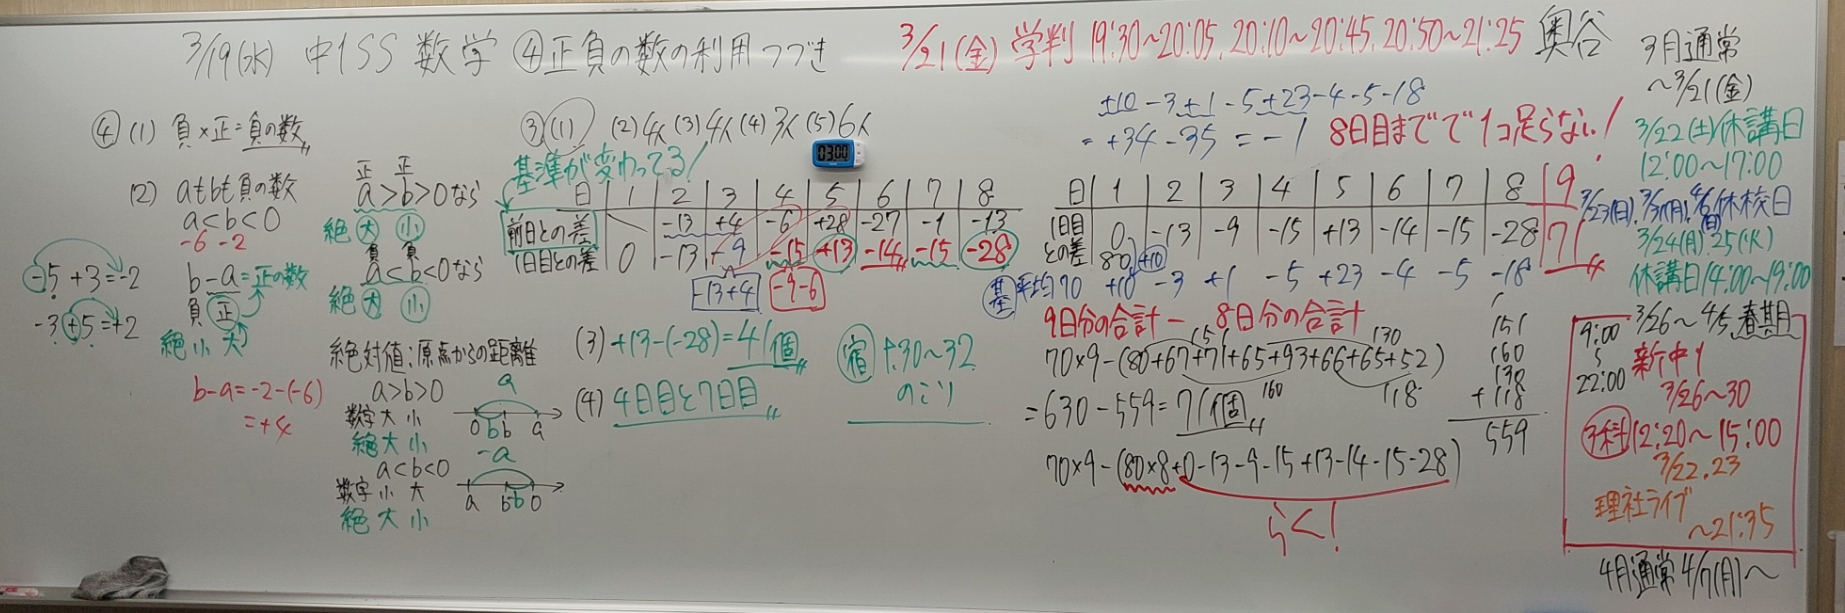 3/19(水) 中1SS 数学 ④正負の数の利用つづき
3/21(金) 学判 19:30~20:05, 20:10~20:45, 20:50~21:25 奥谷
④(1) 負×正=負の数
(2) aもbも負の数
a<b<0
-6 -2
b-a=正の数
負 正
絶 小 大
b-a=-2-(-6)
=+4
-5+3=-2
-3+5=+2
正 正
a>b>0なら
絶 大 小
負 負
a<b<0なら
絶 大 小
絶対値:原点からの距離
a>b>0
数字 大 小
絶 大 小
a
0 b b a
a<b<0
数字 小 大
絶 大 小
-a
a b b 0
③(1) (2)4人 (3)4人 (4)3人 (5)6人
03:00
基準が変わってる!
日 1 2 3 4 5 6 7 8
前日との差 -13 +4 -6 +28 -27 -1 -13
1日目との差 0 -13 -9 -15 +13 -14 -15 -28
-13+4 -9-6
(3)+13-(-28)=41個
(4) 4日目と7日目
宿 P.30~32
のこり
+10-3+1-5+23-4-5-18
=+34-35=-1 8日目までで1コ足らない!
日 1 2 3 4 5 6 7 8 9
1日目との差 0 -13 -9 -15 +13 -14 -15 -28 71
80 +10
基 平均70 +10 -3 +1 -5 +23 -4 -5 -18
9日分の合計-8日分の合計
151 130
70×9-(80+67+71+65+93+66+65+52)
160 118
=630-559=71個
151
160
130
+118
559
70×9-(80×8+0-13-9-15+13-14-15-28)
らく!
3月通常
~3/21(金)
3/22(土)休講日
12:00~17:00
3/23(日), 3/31(月), 4/6(日)休校日
3/24(月).25(火)
休講日14:00~19:00
3/26~4/5 春期
9:00
~
22:00
新中1
3/26~30
3科 12:20~15:00
3/22.23
理社ライブ
~21:35
4月通常 4/7(月)~